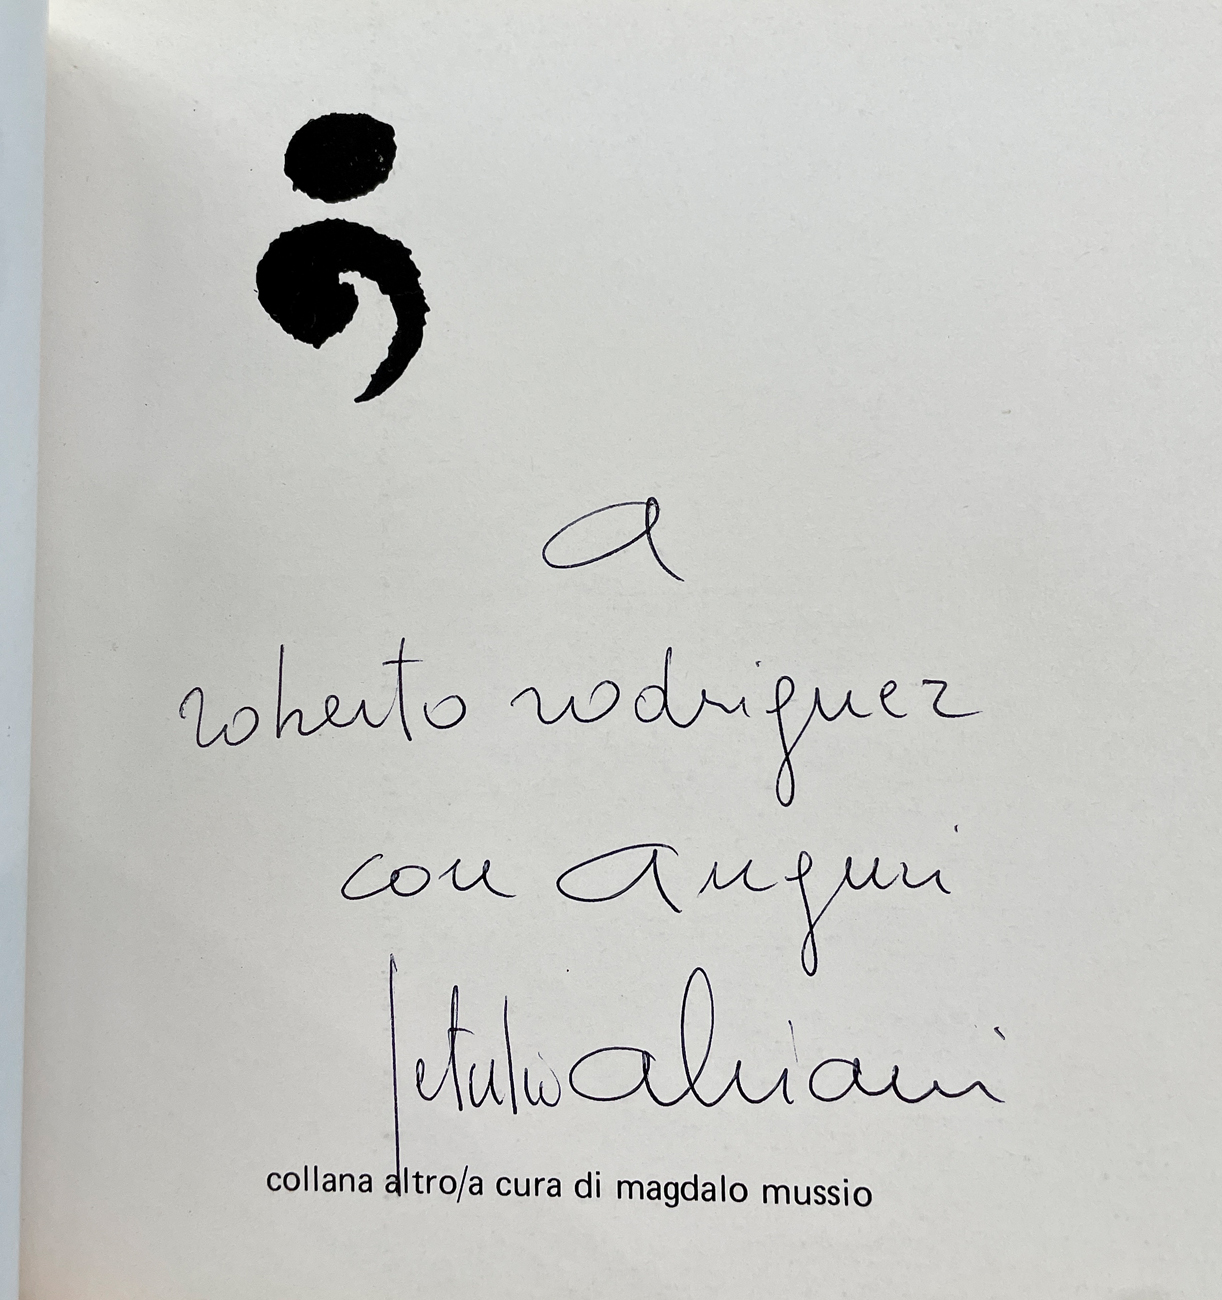 ;
a
roberto rodriguez
con auguri
getulio alviani
collana altro/a cura di magdalo mussio